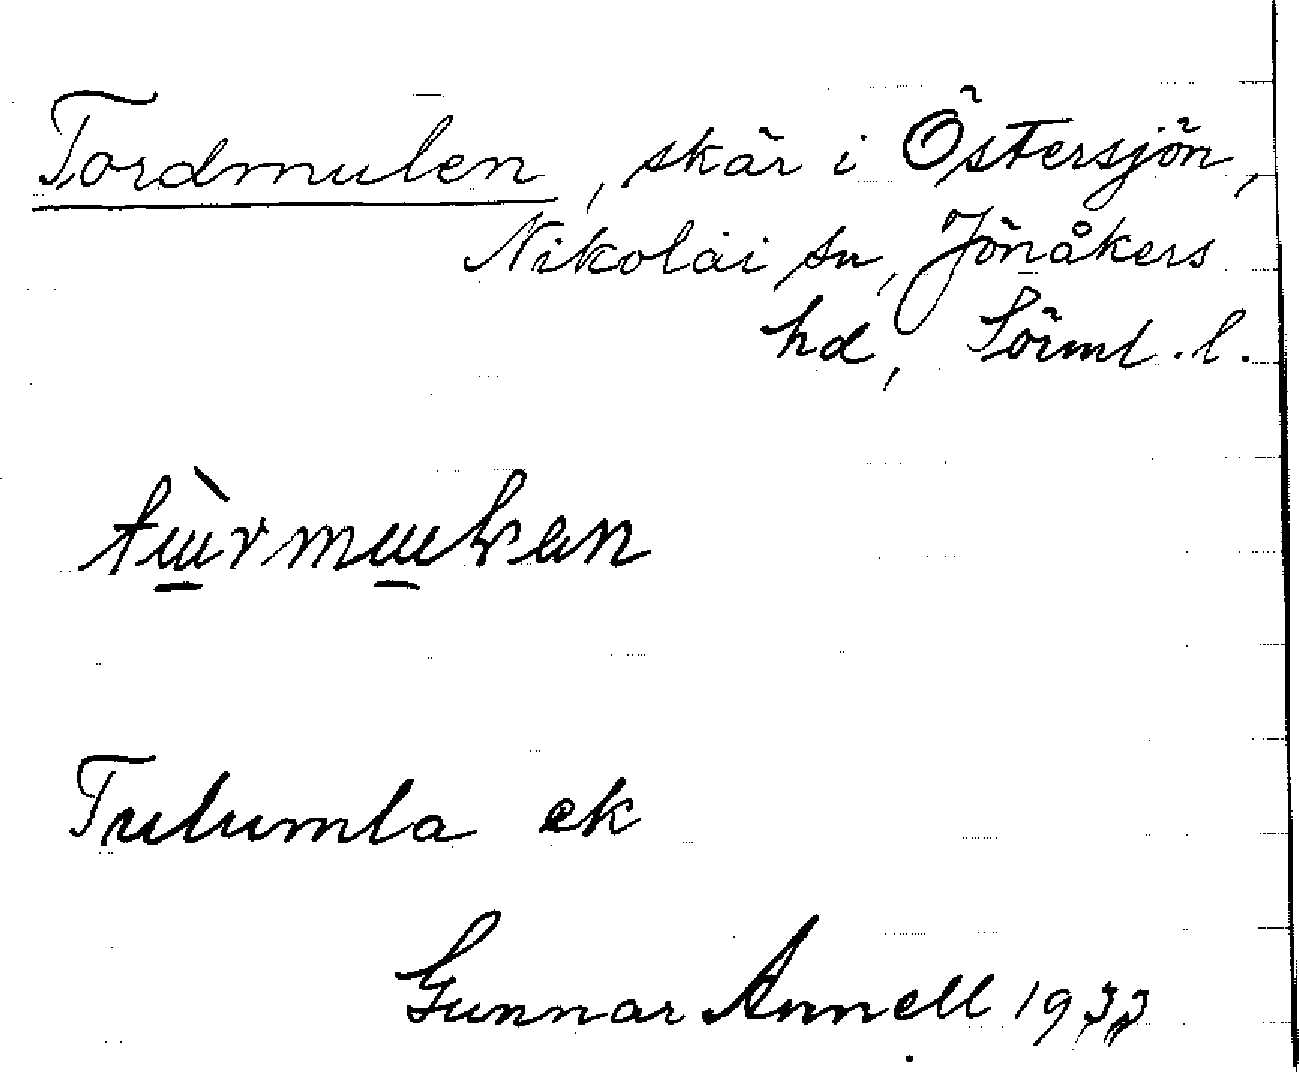 Tordmulen, skär i Östersjön,
Nikolai sn, Jönåkers
hd, Sörml. l.
Tulumla ek
Gunnar Annell 1933